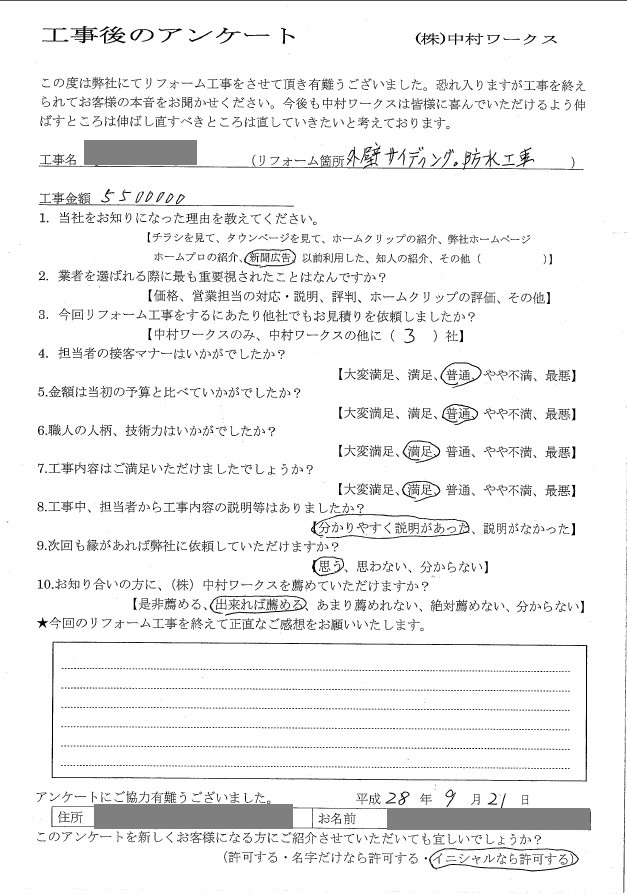 工事後のアンケート (株)中村ワークス
この度は弊社にてリフォーム工事をさせて頂き有難うございました。恐れ入りますが工事を終え
られてお客様の本音をお聞かせください。今後も中村ワークスは皆様に喜んでいただけるよう伸
ばすところは伸ばし直すべきところは直していきたいと考えております。
工事名 (リフォーム箇所 外壁サイディング。防水工事 )
工事金額 5500000
1. 当社をお知りになった理由を教えてください。
【チラシを見て、タウンページを見て、ホームクリップの紹介、弊社ホームページ
ホームプロの紹介、新聞広告、以前利用した、知人の紹介、その他( )】
2. 業者を選ばれる際に最も重要視されたことはなんですか?
【価格、営業担当の対応・説明、評判、ホームクリップの評価、その他】
3. 今回リフォーム工事をするにあたり他社でもお見積りを依頼しましたか?
【中村ワークスのみ、中村ワークスの他に( 3 )社】
4. 担当者の接客マナーはいかがでしたか?
【大変満足、満足、普通、やや不満、最悪】
5.金額は当初の予算と比べていかがでしたか?
【大変満足、満足、普通、やや不満、最悪】
6.職人の人柄、技術力はいかがでしたか?
【大変満足、満足、普通、やや不満、最悪】
7.工事内容はご満足いただけましたでしょうか?
【大変満足、満足、普通、やや不満、最悪】
8.工事中、担当者から工事内容の説明等はありましたか?
【分かりやすく説明があった、説明がなかった】
9.次回も縁があれば弊社に依頼していただけますか?
【思う、思わない、分からない】
10.お知り合いの方に、(株)中村ワークスを薦めていただけますか?
【是非薦める、出来れば薦める、あまり薦めれない、絶対薦めない、分からない】
★今回のリフォーム工事を終えて正直なご感想をお願いいたします。
アンケートにご協力有難うございました。 平成 28 年 9 月 21 日
住所 お名前
このアンケートを新しくお客様になる方にご紹介させていただいても宜しいでしょうか?
(許可する・名字だけなら許可する・イニシャルなら許可する)